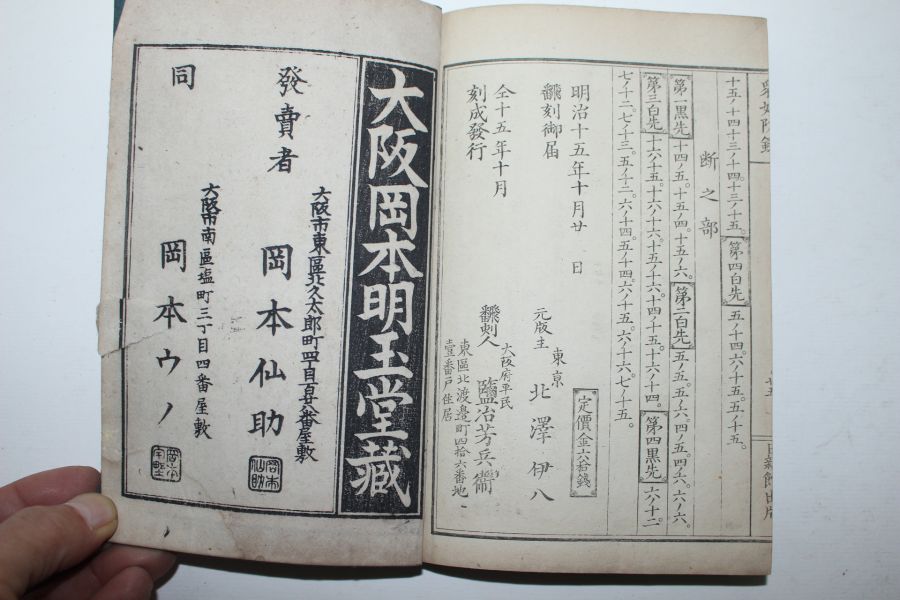 十五ノ十四十三ノ十四。十三ノ十五。第四白先 五ノ十四。六ノ十五。五ノ十五。
断之部
第一黒先 十四ノ五。十五ノ四。十五ノ六。第二白先 五ノ五。五ノ六。四ノ五。四ノ六。六ノ六。
第三白先 十六ノ十五。十六ノ十六。十五ノ十六。十四ノ十五。十六ノ十四。第四黒先 六ノ十二。
七ノ十二。七ノ十三。五ノ十二。六ノ十四。五ノ十四。六ノ十五。六ノ十六。七ノ十五。
定價金六拾錢
明治十五年十月廿 日
翻刻御届
元版主 東京 北澤伊八
仝十五年十月
刻成發行
翻刻人 大阪府平民 鹽冶芳兵衞
東區北渡邊町四拾六番地
壹番戸住居
大阪岡本明玉堂藏
大阪市東區北久太郎町四丁目
發賣者 岡本仙助
大阪市南區塩町三丁目四番屋敷
同 岡本ウノ